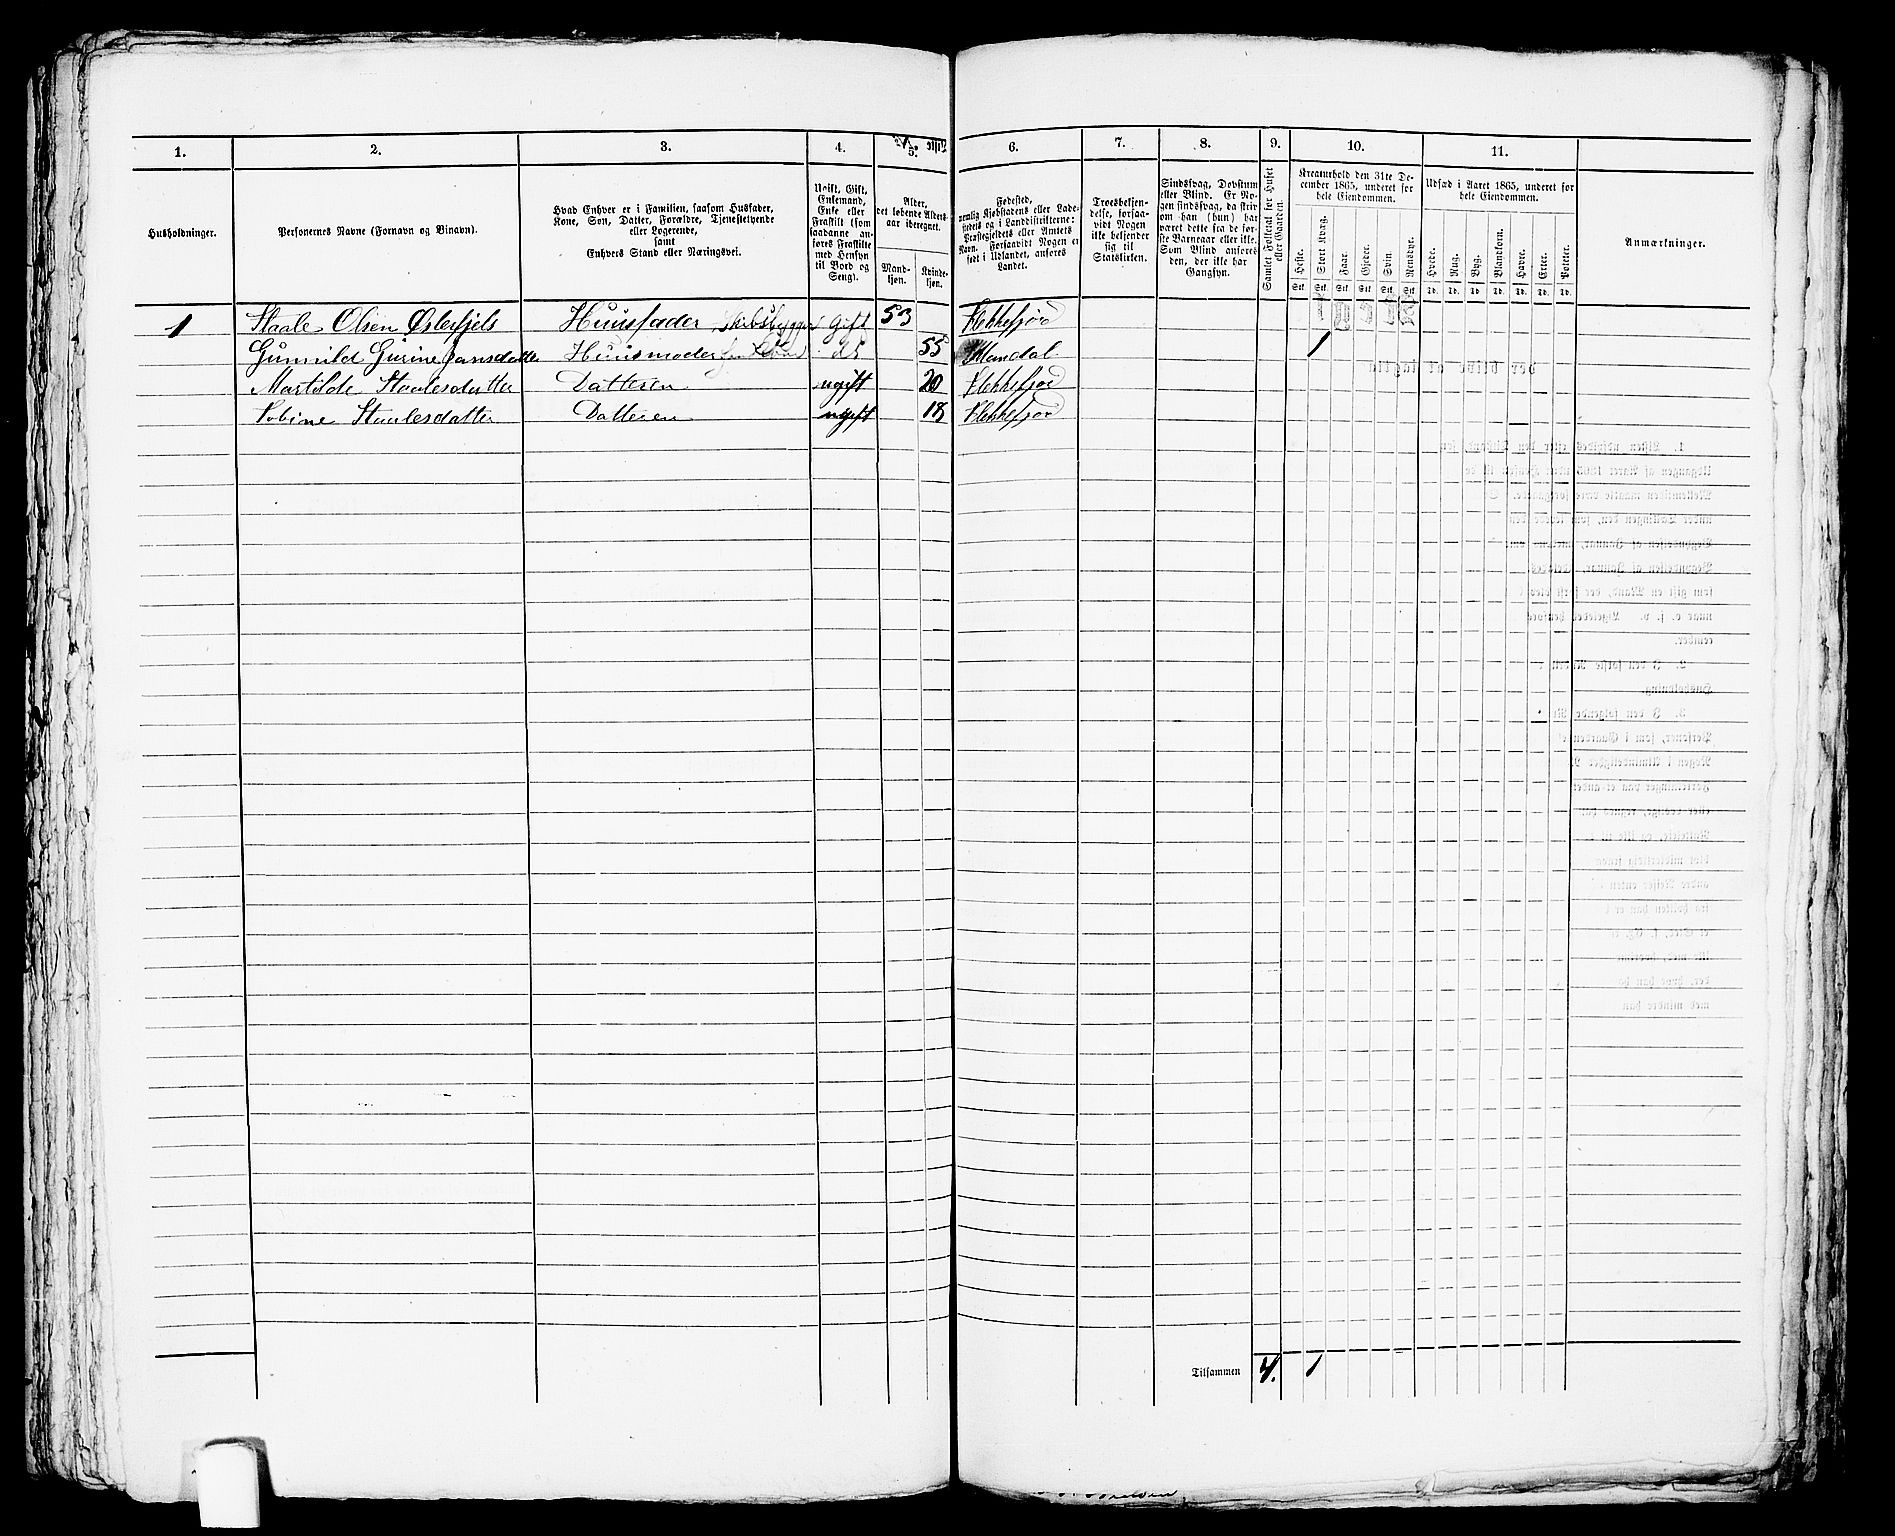 1. 2. 3. 4. 5. 6. 7. 8. 9. 10. 11.
Husholdninger.
Personernes Navne (Fornavn og Binavn).
Hvad Enhver er i Familien, saasom Husfader,
Kone, Søn, Datter, Forældre, Tjenestetyende
eller Logerende,
samt
Enhvers Stand eller Næringsvei.
Ugift, Gift,
Enkemand,
Enke eller
Fraskilt (som
saadanne an-
føres Fraskilte
med Hensyn
til Bord og
Seng).
Alder,
det løbende Alders-
aar iberegnet.
Mand-
kjøn.
Kvinde-
kjøn.
Fødested,
nemlig Kjøbstadens eller Lade-
stedets og i Landdistrikterne:
Præstegjeldets eller Amtets
Navn. Forsaavidt Nogen er
født i Udlandet, anføres
Landet.
Troesbekjen-
delse, forsaa-
vidt Nogen
ikke bekjender
sig til
Statskirken.
Sindssvag, Døvstum
eller Blind. Er No-
gen sindssvag, da skriv
om han (hun) har
været dette fra de før-
ste Barneaar eller ikke.
Som Blind anføres
den, der ikke har
Gangsyn.
Samlet Folketal for Huset
eller Gaarden.
Kreaturhold den 31te De-
cember 1865, underet for
hele Eiendommen.
Heste. Stort Kvæg. Faar. Gjeder. Svin. Rensdyr.
Stk. Stk. Stk. Stk. Stk. Stk.
Udsæd i Aaret 1865, underet for
hele Eiendommen.
Hvede. Rug. Byg. Blandkorn. Havre. Erter. Poteter.
Td. Td. Td. Td. Td. Td. Td.
Anmærkninger.
1 Staale Olsen Østerfjels Huusfader Skibsbygger Gift 53 Flekkefjord
Gunnild Gurine Jansdatter Huusmoder do 55 Mandal 1
Martilde Staalesdatter Datteren ugift 20 Flekkefjord
Sobine Staalesdatter Datteren ugift 18 Flekkefjord
Tilsammen 4. 1